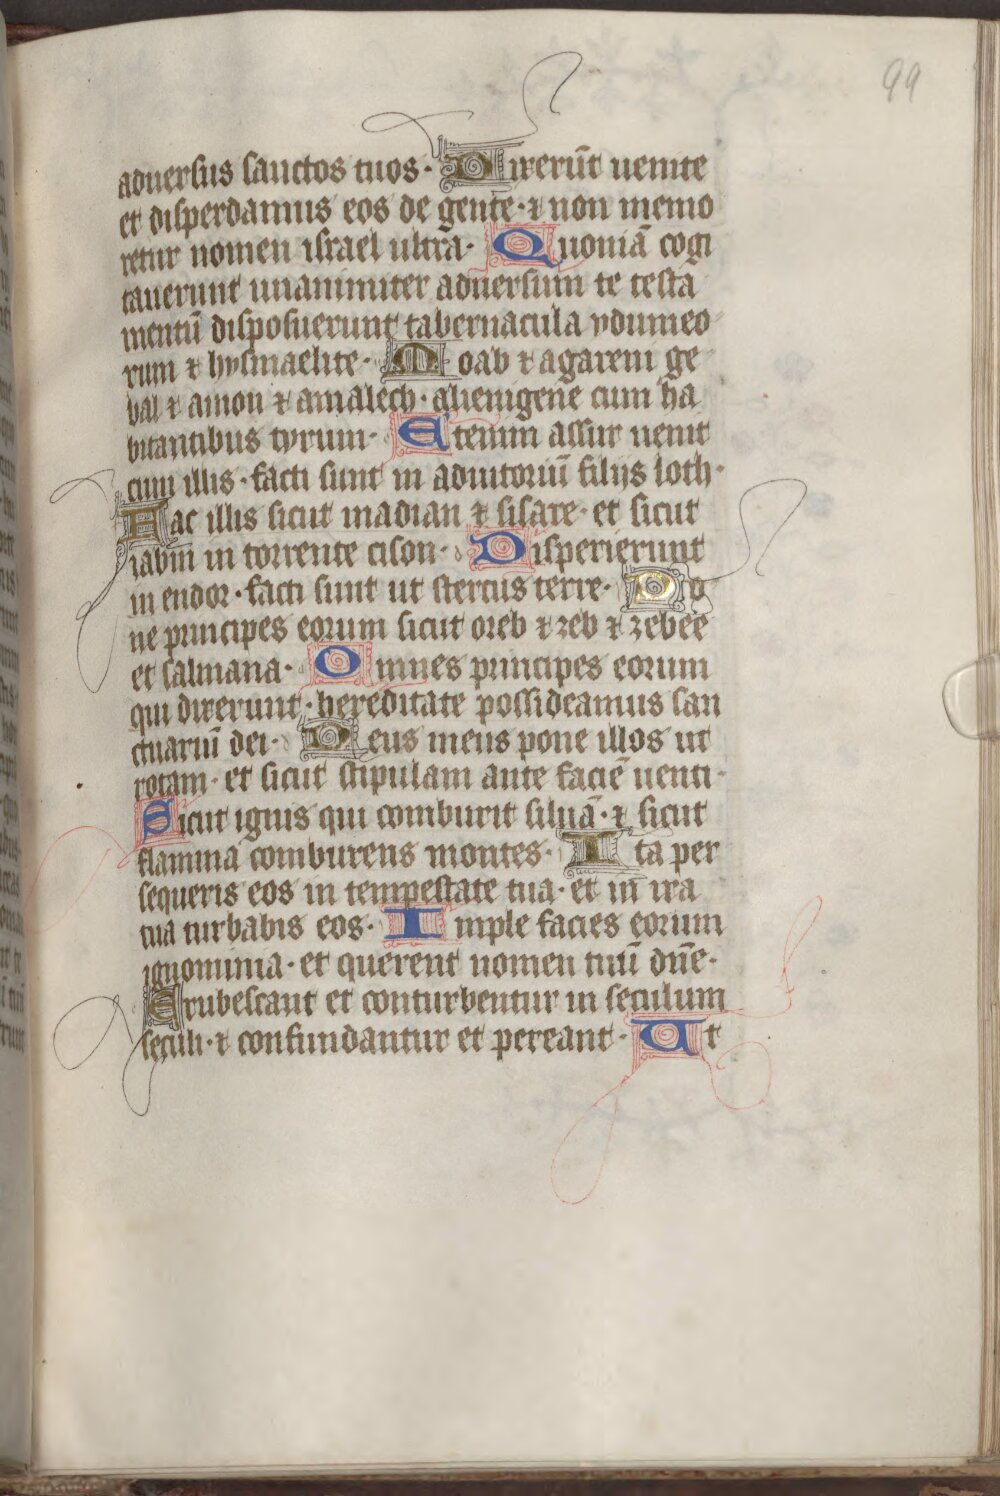 99
aduersus sanctos tuos · Dixerūt uenite
et disperdamus eos de gente · ⁊ non memo
retur nomen israel ultra · Quoniā cogi
tauerunt unanimiter aduersum te testa
mentū disposuerunt tabernacula ydumeo
rum ⁊ hysmaelite · Moab ⁊ agareni ge
bal ⁊ amon ⁊ amalech · alienigene cum ha
bitantibus tyrum · Etenim assur uenit
cum illis · facti sunt in adiutoriū filijs loth ·
Fac illis sicut madian ⁊ sisare · et sicut
iabin in torrente cison · Disperierunt
in endor · facti sunt ut stercus terre · Po
ne principes eorum sicut oreb ⁊ zeb ⁊ zebee
et salmana · Omnes principes eorum
qui dixerunt · hereditate possideamus san
ctuariū dei · Deus meus pone illos ut
rotam · et sicut stipulam ante faciē uenti ·
Sicut ignis qui comburit siluā · ⁊ sicut
flamma comburens montes · Ita per
sequeris eos in tempestate tua · et in ira
tua turbabis eos · Imple facies eorum
ignominia · et querent nomen tuū dn̄e ·
Erubescant et conturbentur in seculum
seculi · ⁊ confundantur et pereant · Ut